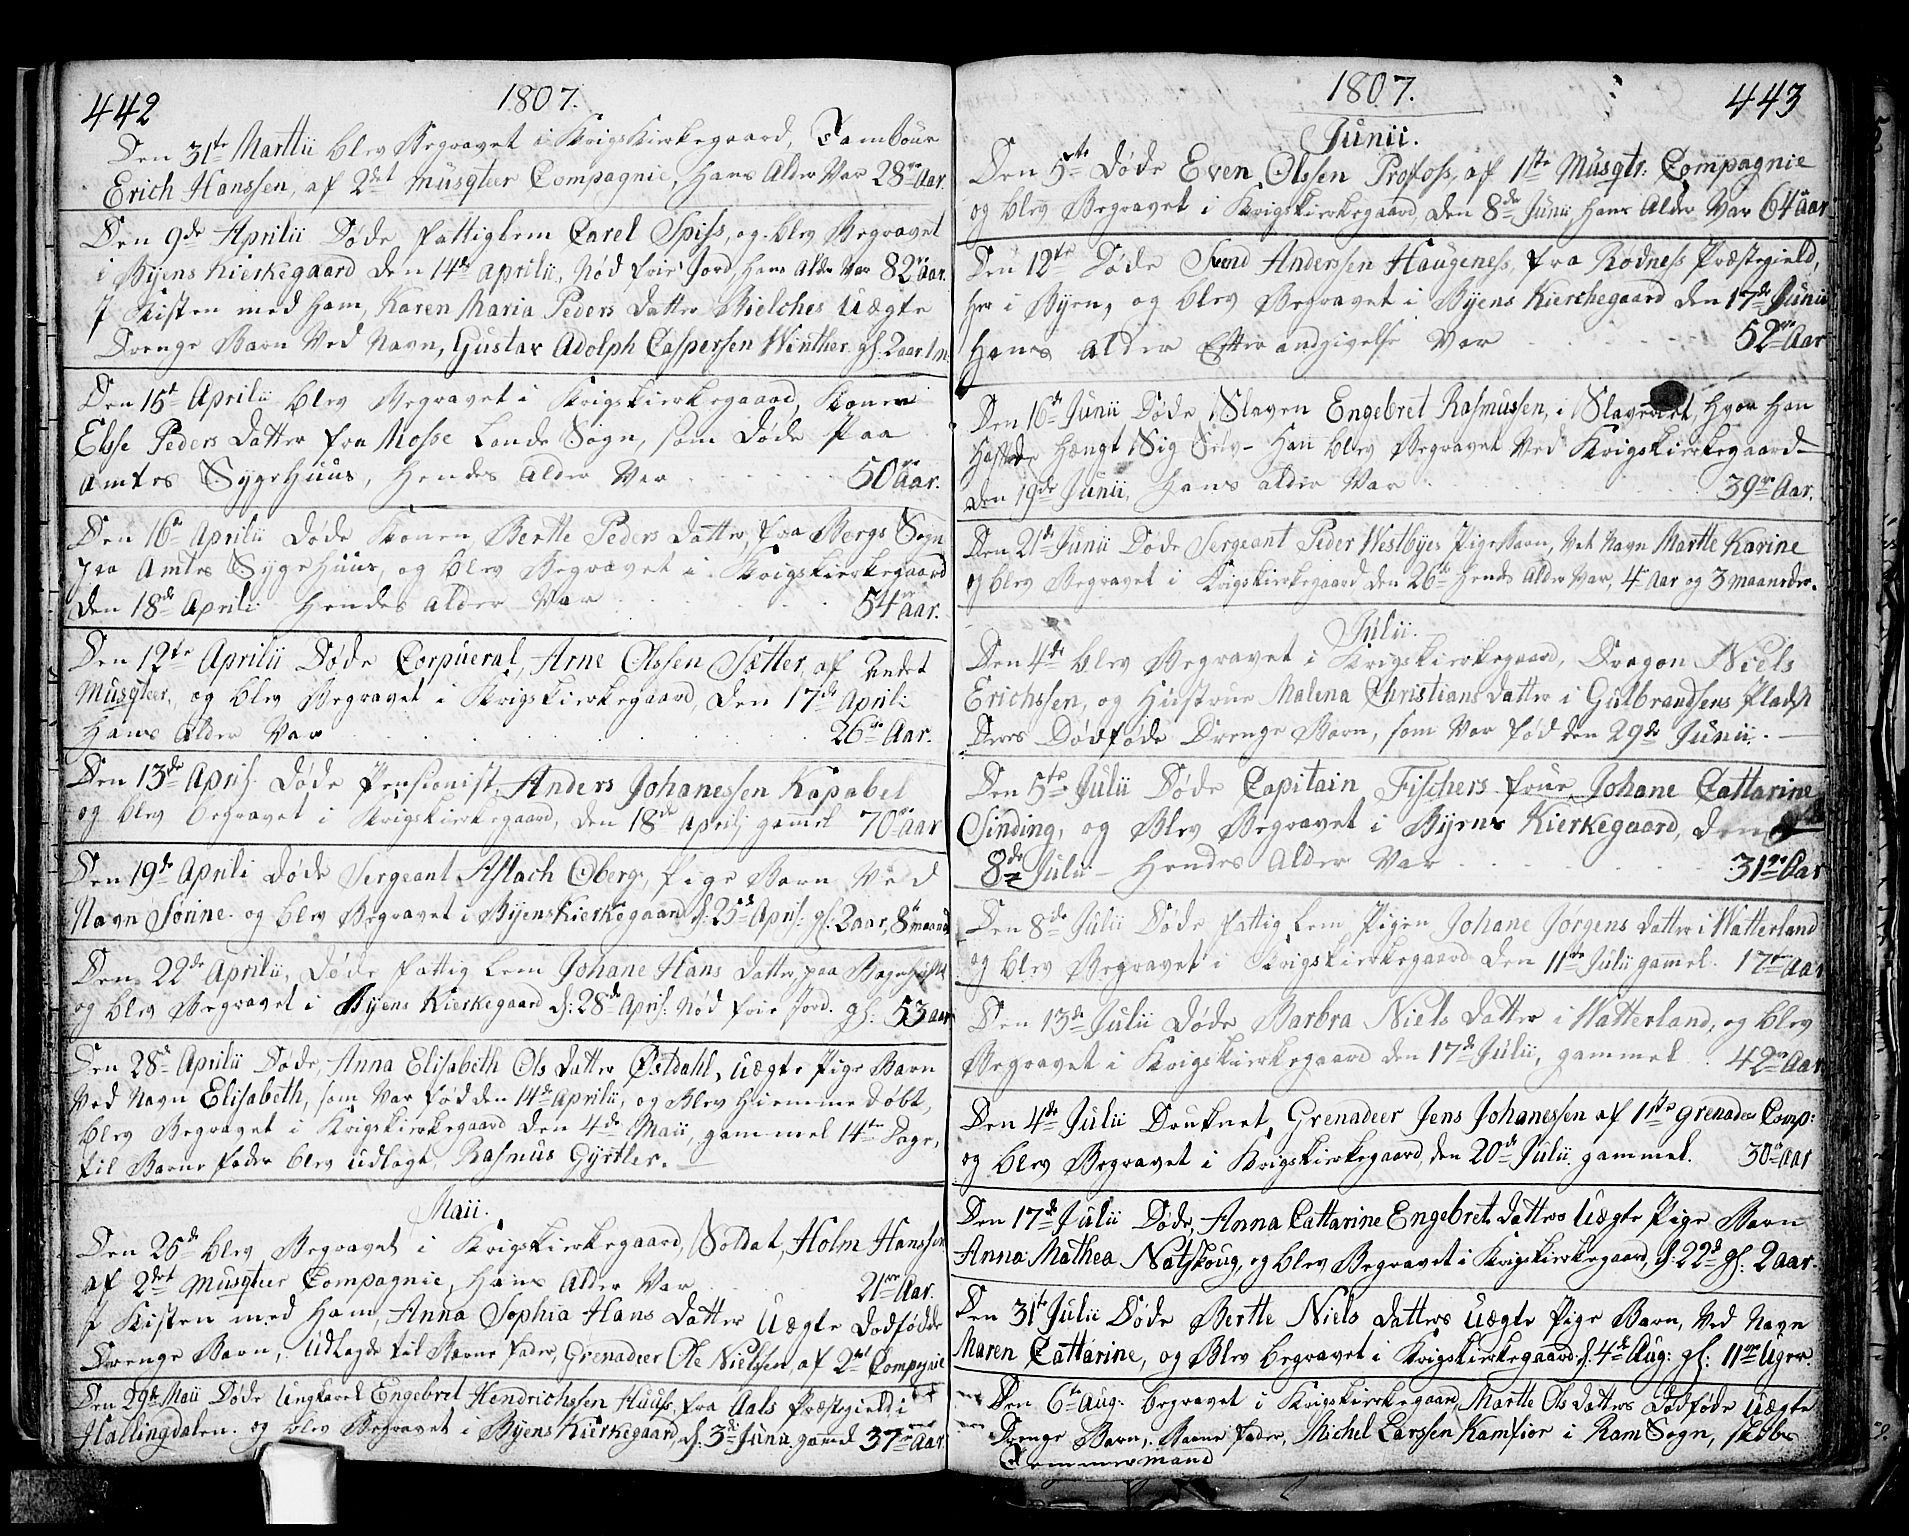 442
1807.
Den 31te Martii blev Begravet i Krigskirkegaard, Tambour
Erich Hanssen, af 2det Musqteer Compagnie, Hans Alder Var 28 Aar.
Den 9de Aprilii Døde fattiglem Carel Spiss, og blev Begravet
i Byens Kierkegaard den 14de Aprilii, Nød frie Jord, hans Alder Var 82 aar.
I Kisten med Ham, Karen Maria Peders datter Bielches Uægte
Drenge Barn Ved Navn, Gustav Adolph Caspersen Winther. gl. 2 aar 1 m
Den 15t Aprilii blev Begravet i Krigskierkegaard, Konen
Else Peders datter fra Mosse Lands Sogn, som døde Paa
Amtes Sygehuus, Hendes Alder Var 50 Aar.
Den 16de Aprilii døde Konen Berthe Peders datter, fra Bergs Sogn
paa Amtes Sygehuus, og blev Begravet i Krigskierkegaard
den 18de Aprili Hendes Alder Var 54 aar.
Den 12te Aprilii Døde Corpueral, Arne Olssen Sætter, af Andet
Musqteer, og blev Begravet i Krigskierkegaard, den 17de Aprili
Hans Alder Var 26 Aar.
Den 13de April. døde Pensionist, Anders Johanessen Kapabel
og blev begravet i Krigskierkegaard, den 18de Aprilj gammel 70 Aar
Den 19de Aprili døde Sergeant Aslach Obergs, Pige Barn Ved
Navn Sørine. og blev Begravet i Byens Kierkegaard d. 23de April. gl. 2 aar, 8 maaned
Den 22de Aprilii, døde fattig Lem Johane Hans datter, paa
og blev Begravet i Byens Kierkegaard d: 28de April: Nød frie Jord. gl: 53 aar
Den 28de Aprilii Døde, Anna Elisabeth Ols datter Østdahl, Uægte Pige Barn
Ved Navn Elisabeth, som Var fød den 14de Aprilii, og Blev Hiemme døbt,
blev Begravet i Krigskierkegaard den 4de Maii, gammel 14ten Dage,
til Barne fader blev Udlagt, Rasmus Gyrtler.
Maii.
Den 26de blev Begravet i Krigskierkegaard, Soldat, Holm Hanssen
af 2det Musqteer Compagnie, Hans Alder Var 21 Aar.
I Kisten med Ham, Anna Sophia Hans datter Uægte Dødfødde
Drenge Barn, Udlagde til Barne fader, Grenadeer Ole Nielssen, af 2det Compgnie
Den 29de Maii Døde Ungkarel Engebret Hendrichssen Huuss, fra Aals Præstegield i
Hallingdalen. og blev Begravet i Byens Kierkegaard, d. 3de Junii. gaml 37 Aar.
1807.
443
Junii.
Den 5te Døde Even Olssen Profoss, af 1ste Musqtr: Compagnie
og blev Begravet i Krigskierkegaard, den 8de Junii Hans Alder Var 64 aar
Den 12te Døde Svend Anderssen Haugeness, fra Rødness Præstegield,
her i Byen, og blev Begravet i Byens Kierchegaard den 17de Junii
Hans Alder Efter andgivelse Var 52 Aar
Den 16de Junii Døde Slaven Engebret Rasmussen, i Slaveriet, hvor Han
Hafde Hængt Sig Selv- Han blev Begravet Ved Krigskierkegaard-
den 19de Junii, Hans Alder Var 39 Aar.
Den 21de Junii Døde Sergeant Peder Westbyes Pige Barn, Vet Navn Marthe Karine
og blev Begravet i Krigskierkegaard den 26de Hends Alder Var, 4 Aar og 3 maaneder.
Julii.
Den 4de blev Begravet i Krigskierkegaard, Dragon Niels
Erichssen, og Hustrue Malena Christians datter i Gulbrandsens Plads
Deres Dødføde Drenge Barn, som Var fød den 29de Junii.
Den 5te Julii Døde Capitain Fischers frue, Johane Cattarine
Sinding, og Blev Begravet i Byens Kierkegaard, den
8de Julii - Hendes Alder Var 31 Aar
Den 8de Julii Døde fattig Lem, Pigen Johane Jørgens datter i Watterland
og blev Begravet i Krigskierkegaard den 11te Julii gamel. 17 Aar
Den 13de Julii døde Barbra Niels datter i Watterland, og blev
Begravet i Krigskierkegaard den 17de Julii, gammel 42 Aar
Den 4de Julii Druknet, Grenadeer Jens Johanessen af 1ste grenadee Comp:
og blev Begravet i Krigskierkegaard, den 20de Julii gammel. 30 aar
Den 17de Julii Døde, Anna Cattarine Engebrets datters Uægte Pige Barn
Anna Mathea Nøtskoug, og blev Begravet i Krigskierkegaard, d: 22de gl: 2 aar.
Den 31te Julii Døde Berthe Niels datters Uægte Pige Barn, Ved Navn
Maren Cattarine, og Blev begravet i Krigskierkegaard d: 4de Aug: gl: 11 Uger.
Den 6te Aug: begravet i Krigskierkegaard, Marthe Ols datters dødføde Uægte
Drenge Barn, Barne fader, Michel Larssen Kamfior i Ram Sogn, skibs
Tømmermand